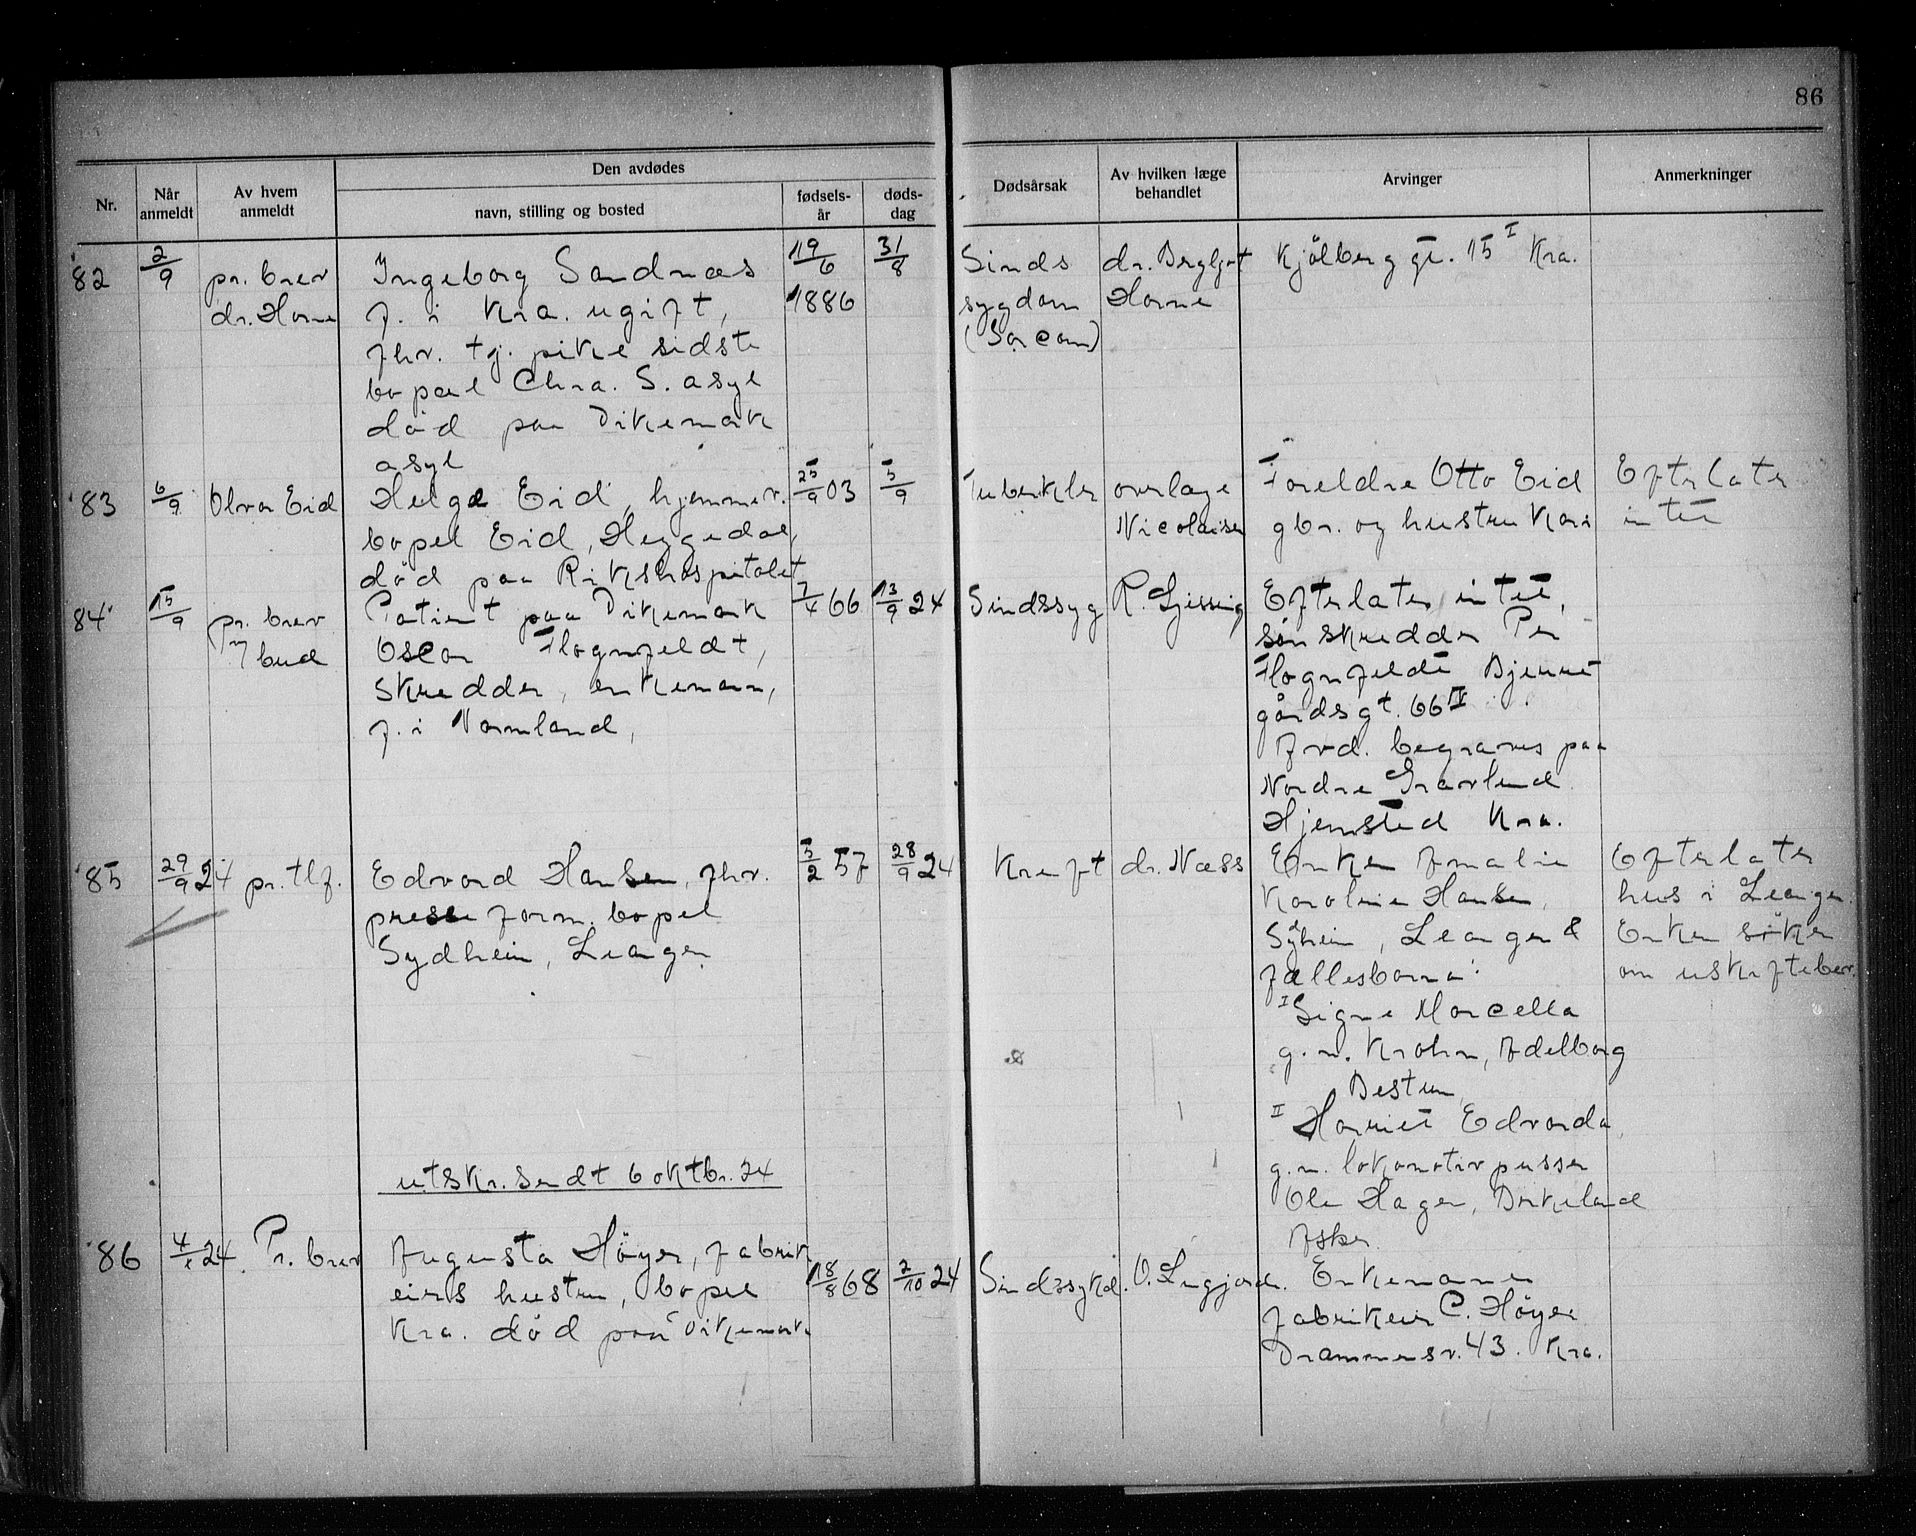 86
Den avdødes
Nr.
Når anmeldt
Av hvem anmeldt
navn, stilling og bosted
fødsels-år
døds-dag
Dødsårsak
Av hvilken læge behandlet
Arvinger
Anmerkninger
82
2/9
pr. brev
dr. Horne
Ingeborg Sandnæs
f. i Kra. ugift,
fhv. tj. pike sidste
bopæl Chra. S. asyl
død paa Dikemark
asyl
19/6
1886
31/8
Sinds
sygdom
(Sarcom)
dr. Bergljot
Horne
Kjølberg gt. 15 I Kra.
83
6/9
Olva Eid
Helge Eid, hjemmev.
bopel Eid, Heggedal,
død paa Rikshospitalet
25/9 03
5/9
Tuberkler
overlæge
Nicolaisen
Foreldre Otto Eid
gbr. og hustru Kari
Efterlater
intet
84
15/9
pr. brev
m/ bud
Patient paa Dikemark
Oscar Flognfeldt,
skredder, enkemann,
f. i Varmland,
7/4 66
13/9 24
Sindssyg
R. Gjessing
Efterlater intet,
søn skredder Per
Flognfeldt Bjerre
gårdsgt. 66 IV
Avd. begraves paa
Nordre Gravlund
Hjemsted Kra.
85
29/9 24
pr. tlf.
Edvard Hansen, fhv.
presse form. bopel
Sydheim, Leangen
5/2 57
28/9 24
Kreft
dr. Næss
Enken Amalie
Karoline Hansen,
Sydheim, Leangen &
fællesbarna:
I Signe Marcella
g.m. Krohn, Adelborg
Bestum
II Harriet Edvarda,
g.m. lokomotivpusser
Ole Hagen, Birkeland
Asker.
Efterlater
hus i Leangen.
Enken søker
om uskiftebev.
utskr. sendt 6 oktbr. 24
86
4/x 24
Pr. brev
Augusta Høyer, fabrik
eiers hustru, bopel
Kra. død paa Dikemark
18/8 68
2/10 24
Sindssykd.
O. Lugjord.
Enkemann
fabrikeier C. Høyer
Drammensv. 43. Kra.